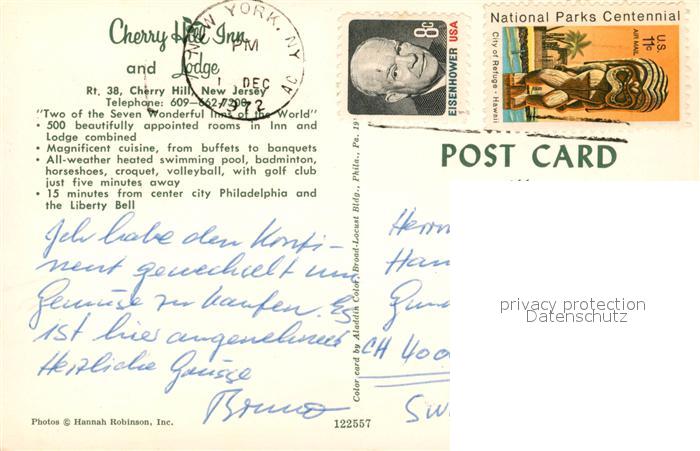 Cherry Hill Inn
and Lodge
Rt. 38, Cherry Hill, New Jersey
Telephone: 609—662-7200
"Two of the Seven Wonderful Inns of the World"
• 500 beautifully appointed rooms in Inn and
Lodge combined
• Magnificent cuisine, from buffets to banquets
• All-weather heated swimming pool, badminton,
horseshoes, croquet, volleyball, with golf club
just five minutes away
• 15 minutes from center city Philadelphia and
the Liberty Bell
NEW YORK, NY
PM
1 DEC
1972
AC
8c
EISENHOWER USA
National Parks Centennial
City of Refuge · Hawaii
U.S.
AIR MAIL
11c
POST CARD
Color card by Aladdin Color, Broad-Locust Bldg., Phila., Pa. 19
Ich habe den Konti-
nent gewechselt um
Gemüse zu kaufen. Es
ist hier angenehmer
Herzliche Grüsse
Bruno
Herrn
Han
CH 400
SW
privacy protection
Datenschutz
Photos © Hannah Robinson, Inc.
122557